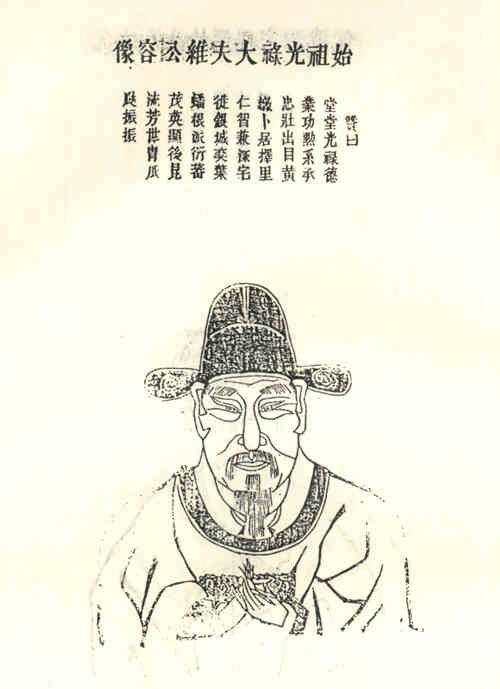 始祖光祿大夫維公容像
贊曰
堂堂光祿德
業功勲系承
忠壯出目黄
墩卜居擇里
仁智兼深宅
徙銀城奕葉
蟠根派衍蕃
茂英顯後昆
流芳世胄瓜
瓞振振